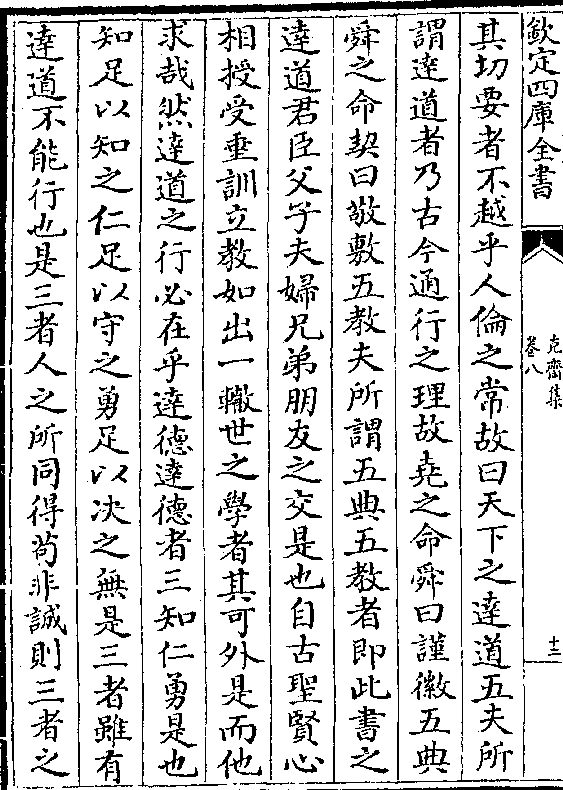 欽定四庫全書
克齋集
卷八
十三
其切要者不越乎人倫之常故曰天下之達道五夫所
謂達道者乃古今通行之理故堯之命舜曰謹徽五典
舜之命契曰敬敷五教夫所謂五典五教者即此書之
達道君臣父子夫婦兄弟朋友之交是也自古聖賢心
相授受垂訓立教如出一轍世之學者其可外是而他
求哉然達道之行必在乎達德達德者三知仁勇是也
知足以知之仁足以守之勇足以决之無是三者雖有
達道不能行也是三者人之所同得茍非誠則三者之